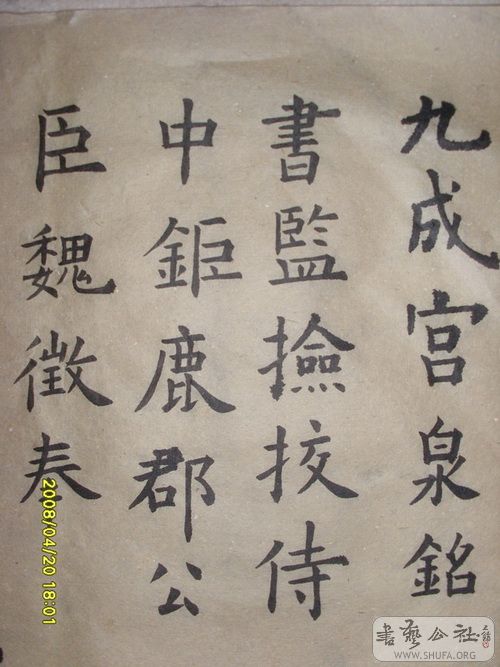 九成宫泉銘
書監撿挍侍
中鉅鹿郡公
臣魏徵奉
2008/04/20 18:01
書藝公社
WWW.SHUFA.ORG